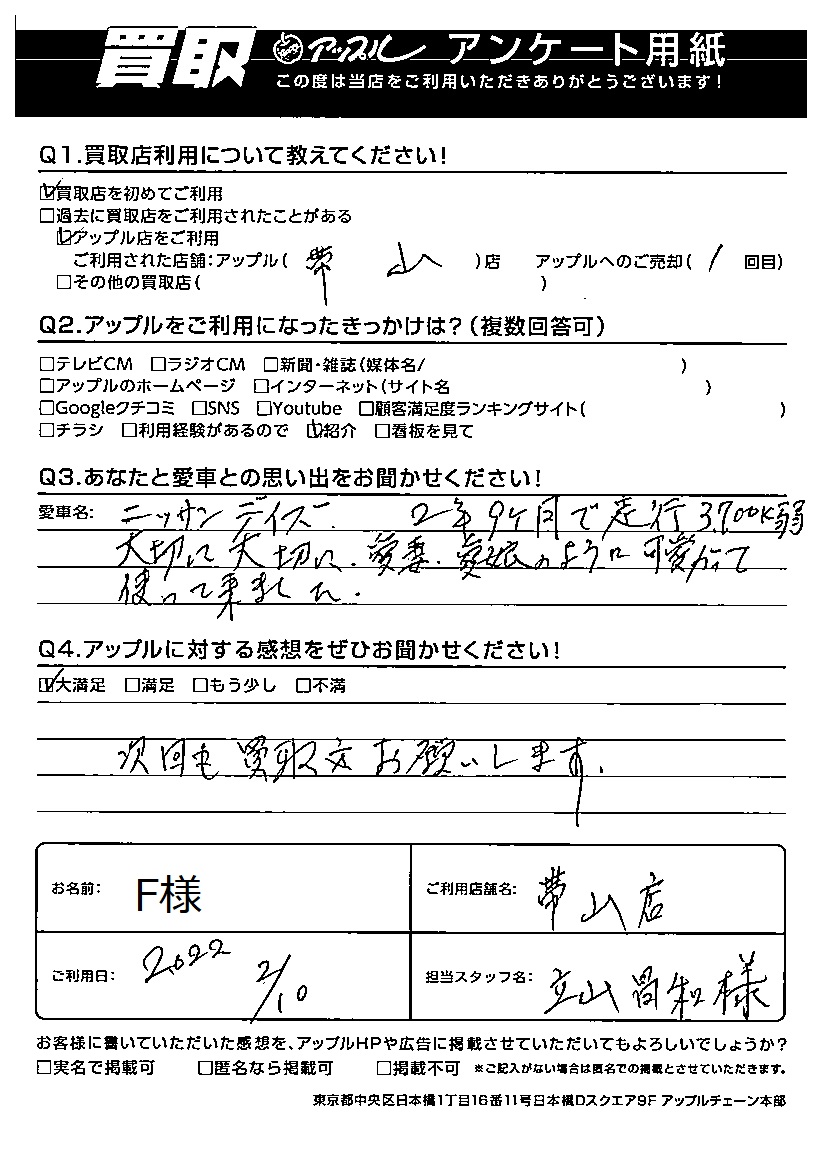 買取 アップル アンケート用紙
この度は当店をご利用いただきありがとうございます!
Q1.買取店利用について教えてください!
☑買取店を初めてご利用
□過去に買取店をご利用されたことがある
☑アップル店をご利用
ご利用された店舗:アップル( 帯山 )店 アップルへのご売却( 1 回目)
□その他の買取店( )
Q2.アップルをご利用になったきっかけは?(複数回答可)
□テレビCM □ラジオCM □新聞・雑誌(媒体名/ )
□アップルのホームページ □インターネット(サイト名 )
□Googleクチコミ □SNS □Youtube □顧客満足度ランキングサイト( )
□チラシ □利用経験があるので ☑紹介 □看板を見て
Q3.あなたと愛車との思い出をお聞かせください!
愛車名: ニッサンデイズ. 2年9ヶ月で走行3,700K弱
大切に大切に、愛妻、愛娘のように可愛がって
使って来ました.
Q4.アップルに対する感想をぜひお聞かせください!
☑大満足 □満足 □もう少し □不満
次回も買取をお願いします.
お名前: F様 ご利用店舗名: 帯山店
ご利用日: 2022 2/10 担当スタッフ名: 立山昌和様
お客様に書いていただいた感想を、アップルHPや広告に掲載させていただいてもよろしいでしょうか?
□実名で掲載可 □匿名なら掲載可 □掲載不可 ※ご記入がない場合は匿名での掲載とさせていただきます。
東京都中央区日本橋1丁目16番11号日本橋Dスクエア9F アップルチェーン本部